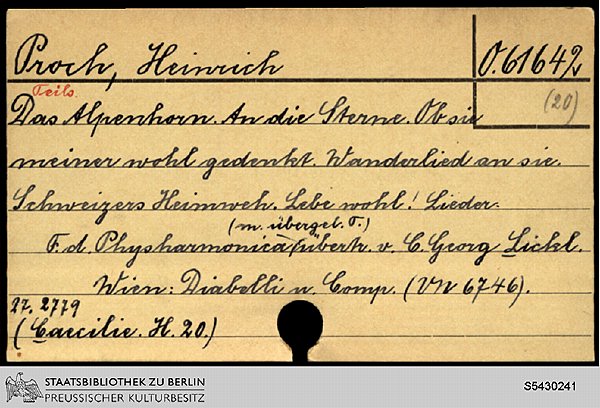 Proch, Heinrich
O. 61642
Teils
(20)
Das Alpenhorn. An die Sterne. Ob sie
meiner wohl gedenkt. Wanderlied an sie.
Schweizers Heimweh. Lebe wohl! Lieder.
(m. übergel. T.)
F. d. Physharmonica übertr. v. C. Georg Lickl.
Wien: Diabelli u. Comp. (VN 6746).
27. 2779
(Caecilie. H. 20.)
STAATSBIBLIOTHEK ZU BERLIN
PREUSSISCHER KULTURBESITZ
S5430241